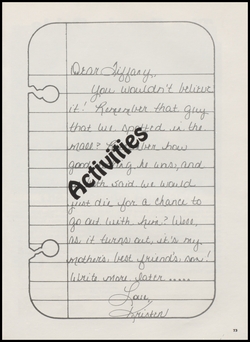 Dear Tiffany,
You wouldn't believe
it! Remember that guy
that we spotted in the
mall? how
good he was, and
said we would
just die for a chance to
go out with him? Well,
as it turns out, it's my
mother's best friend's son!
Write more later .....
Love,
Kristen
Activities